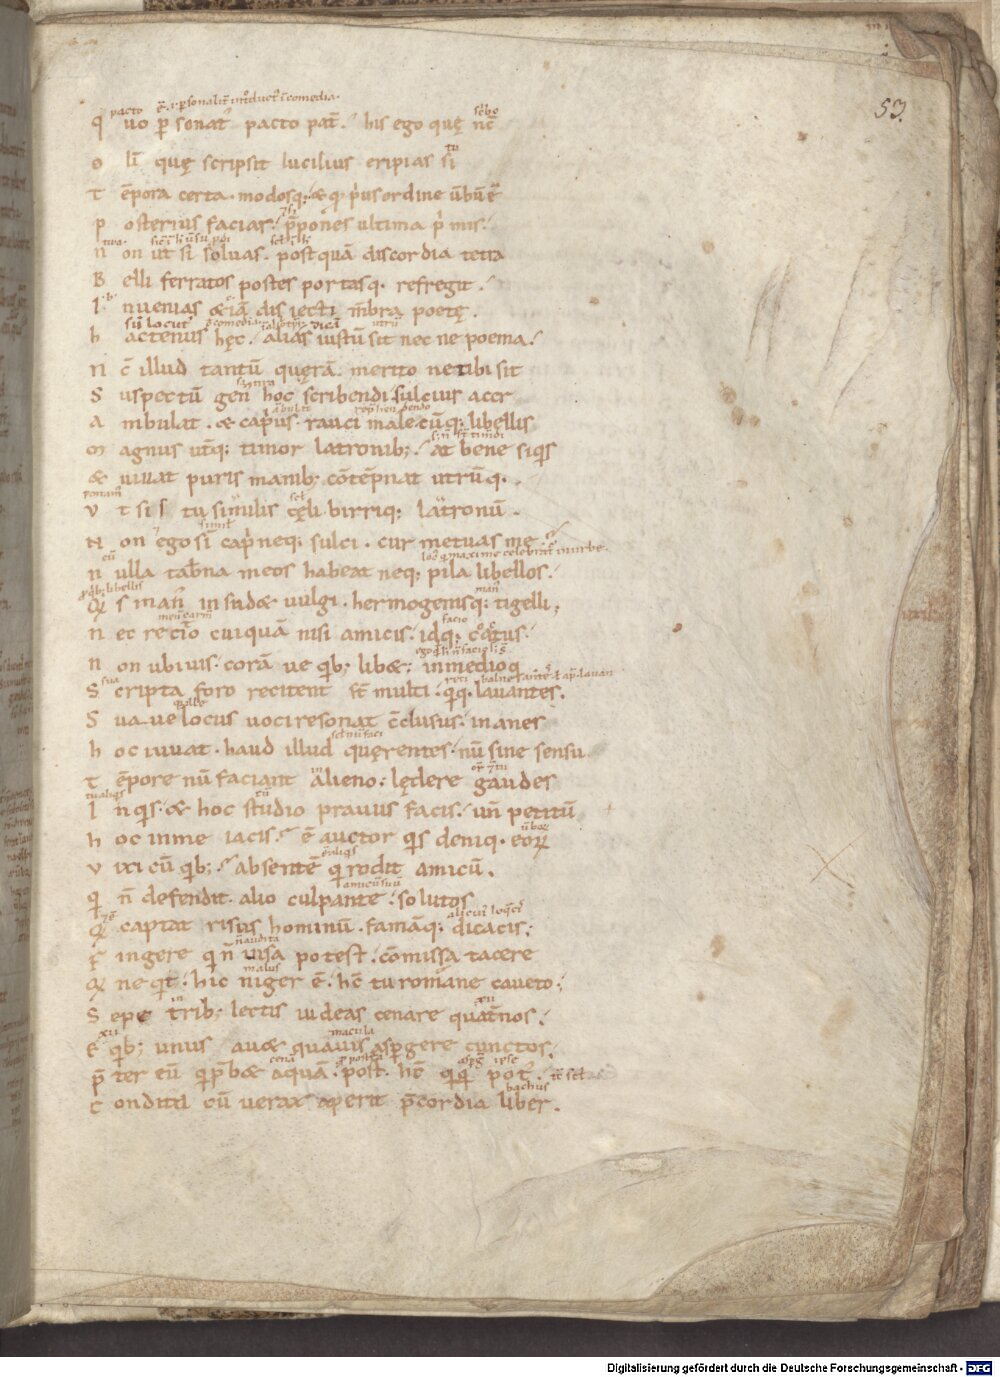 53.
pacto ē. i. psonalit introduct ī comedia. scbo
q uo psonat pacto pat̄. his ego quę nc̄
tu
o lī quę scripsit lucilius eripias si
t ēpora certa. modosq; & qđ prius ordine ūbū ē
p osterius facias. p̄pones ultima primis.
n on ut si soluas. postquā discordia tetra
B elli ferratos postes portasq. refregit.
I nuenias &iā disiecti mb̄ra poetę.
h actenus hęc. alias iustū sit nec ne poema.
N c̄ illud tantū quęrā. merito ne tibi sit
satira
S uspectū gen hoc scribendi. sulcius acer
a mbulat. & capr̄ius. rauci male. cūq; libellis
m agnus ut̄q; timor latronib; at bene siqs
& uiuat puris manib; cōtēpnat utrūq.
v t sis tu similis cęli. birriq; latronū.
N on ego sī capri neq; sulci. cur metuas me.
n ulla tab̄na meos habeat neq; pila libellos.
Q̨ s man̄ insud& uulgi. hermogenisq; tigelli,
n ec recito cuiquā nisi amicis. idq; coactus.
n on ubiuis. corā ue qb; lib&; in medio q
S cripta foro recitent st̄ multi. qq. lauantes.
S uaue locus uoci resonat c̄clusus. inanes
h oc iuuat. haud illud quęrentes. nū sine sensu
t ēpore nū faciant alieno; lędere gaudes
I nqs. & hoc studio prauus facis. un̄ petitū
h oc in me iacis. ē auctor qs deniq. eoꝝ
v ixi cū qb; absentē qui rodit amicū.
q n̄ defendit. alio culpante. solutos
Q̨ captat risus hominū. famāq; dicacis;
F ingere q n̄ uisa potest. cōmissa tacere
malus
Q̨ neqt. hic niger ē. hc̄ tu romane caueto;
S epe trib; lectis uideas cenare quat̄nos.
macula
E qb; unus au& quāuis aspgere cunctos.
cenā
p̄ter eū q p̄b& aquā. post. hc̄ qq potꝰ.
bachus
C onditi cū uerax aperit p̄cordia liber.
Digitalisierung gefördert durch die Deutsche Forschungsgemeinschaft - DFG